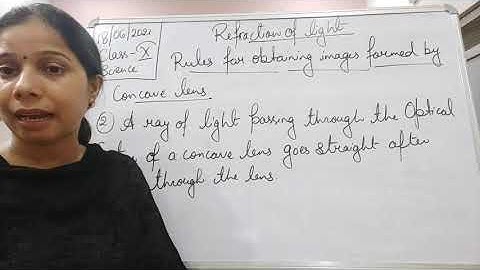 18/06/2021
Class-X
Science
Refraction of light
Rules for obtaining images formed by
Concave lens
② A ray of light passing through the Optical
of a concave lens goes straight after
through the lens.